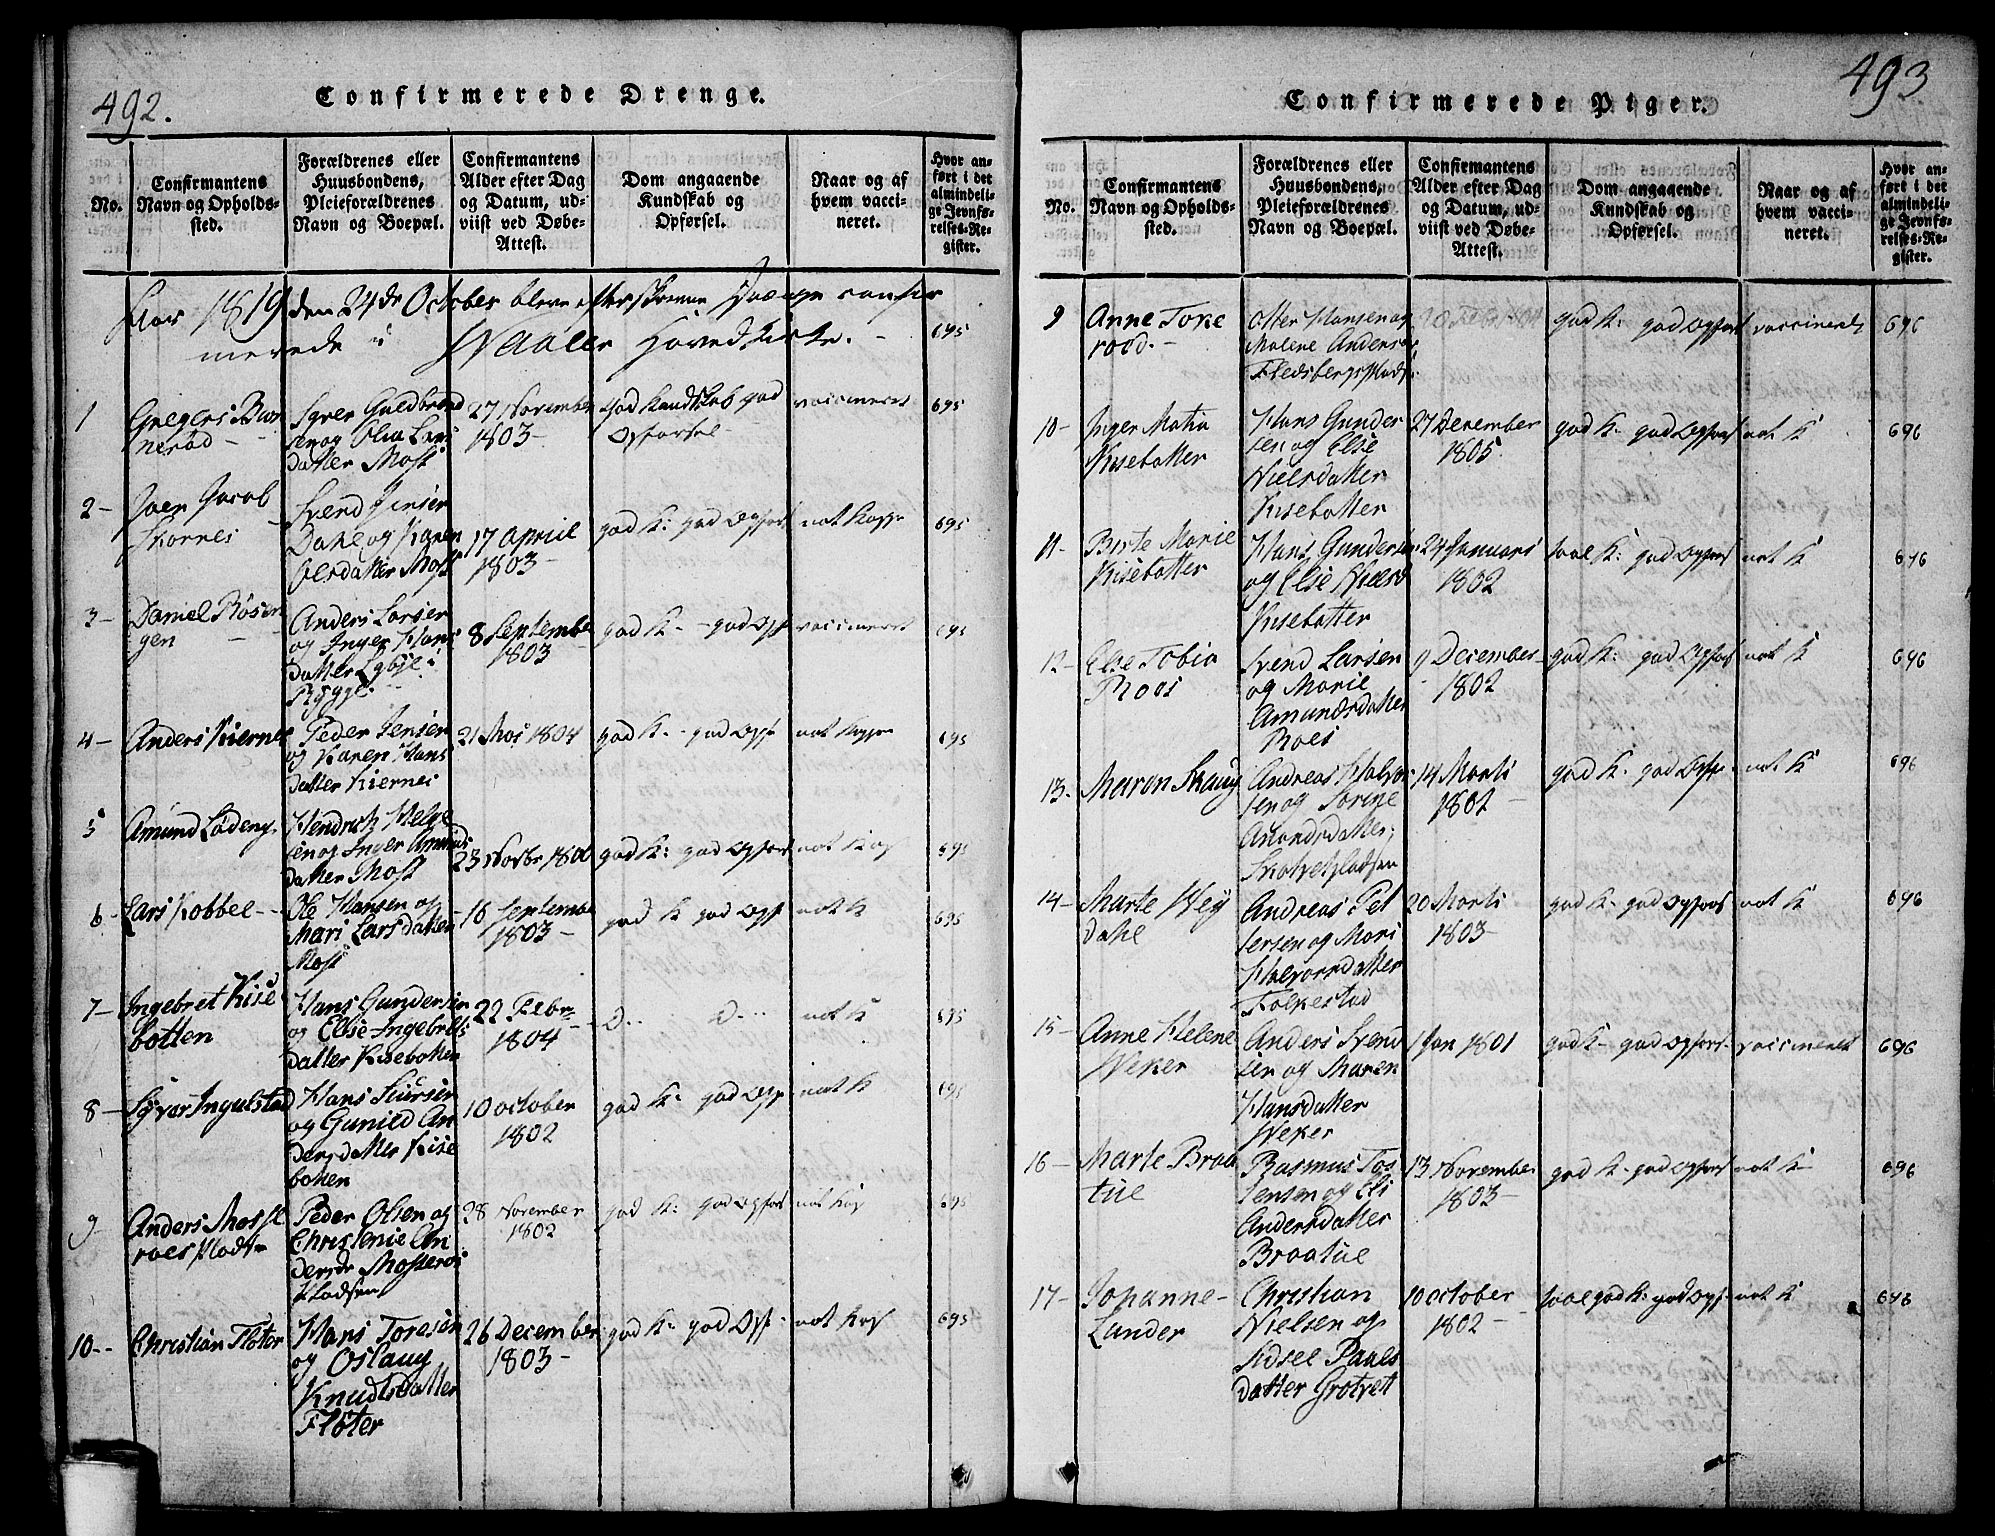 492.
Confirmerede Drenge.
No.
Confirmantens
Navn og Opholds-
sted.
Forældrenes eller
Huusbondens,
Pleieforældrenes
Navn og Boepæl.
Confirmantens
Alder efter Dag
og Datum, ud-
viist ved Døbe-
Attest.
Dom angaaende
Kundskab og
Opførsel.
Naar og af
hvem vacci-
neret.
Hvor an-
ført i det
almindeli-
ge Jevnfø-
relses-Re-
gister.
Aar 1819 den 24de October bleve efterskrevne Drenge confir
merede i Waaler Hovedkirke. - 695
1 Gregers Bur
nerød - -
Syver Guldbrand
sen og Olia Lars
datter Moss
27 November
1803 -
god Kundskab god
Opførsel -
vaccineret
695
2 - Joen Jacob
Skornes
Svend Jensen
Dahl og Karen
Olersdatter Moss
17 April
1803 -
god K: god Opførs
nat Kopp
695
3 - Daniel Rosen
gen - -
Anders Larsen
og Inger Hans
datter
Rygge
8 September
1803
god K. - god Opf
vaccineret
695
4 - Anders Kiernes
Peder Jensen
og Karen Hans
datter Kiernes
21 Mai 1804
god K. - god Opf
nat Kopp
695
5 Amund Lødeng.
Hendrich Helge
sen og Inger Amunds
datter Moss
23 Novbr 1800
god K: god Opførs
nat Kop
695
6 - Lars Kobbel - -
Ole Hansen og
Mari Larsdatter
Moss
16 Septembe
1803 -
god K god Opf
nat K
695
7 - Ingebret Kise
botten
Hans Gundersen
og Else Ingebrets
datter Kisebotten
22 Febr -
1804
D. . D. . .
nat K
695
8 - Syver Ingulstad
Hans Siursen
og Gunild An
dersdatter Kise
botten
10 october
1802
god K: god Opf
nat K
695
9 - Anders Mosse
roes Pladsen
Peder Olsen og
Christenie An
dersdr Mosserøs
Pladsen
28 November
1802
god K: god Opførs
nat Kop
695
10 - - Christian Fløter
Hans Toresen
og Oslaug
Knudtsdatter
Fløter
26 December
1803 -
god K - god Opf -
nat Kop
695
493
Confirmerede Piger.
No.
Confirmantens
Navn og Opholds-
sted.
Forældrenes eller
Huusbondens,
Pleieforældrenes
Navn og Boepæl.
Confirmantens
Alder efter Dag
og Datum, ud-
viist ved Døbe-
Attest.
Dom angaaende
Kundskab og
Opførsel.
Naar og af
hvem vacci-
neret.
Hvor an-
ført i det
almindeli-
ge Jevnfø-
relses-Re-
gister.
9 Anne Toke
rød. -
Otter Hansen og
Malene Anders
Fledsbergspladsen
god K: god Opførs
vaccineret
696
10 - Inger Matia
Kisebotten
Hans Gunder
sen og Else
Nielsdatter
Kisebotten
27 December
1805.
god K - god Opførs
nat K
696
11 - Birte Marie
Kisebotten
Hans Gundersen
og Else Nielsd
Kisebotten
24 Januari
1802
saal K: god Opførs
nat K
696
12 - Else Tobia
Roos
Svend Larsen
og Marie
Amundsdatter
Roes
9 December
1802
god K: god Opførs
nat K
696
13. Maron Skaug
Andreas Halvor
sen og Sorine
Amondsdatter
14 Marti
1802 -
god K. god Opf.
nat K
696
14 - Marte Hey
dahl
Andreas Pet
tersen og Mari
Halvorsdatter
Folkestad
20 Marti
1803 -
god K - god Opførs
nat K
696
15 - Anne Helene
Weker
Anders Svend
sen og Maren
Hansdatter
Weker
1 Jan 1801
god K - god Opførs -
vaccineret
696
16 - Marte Braa
tue
Rasmus Tos
tensen og Eli
Andersdatter
Braatue
13 November
1803 -
god K - god Opførs
nat K -
696
17 - Johanne -
Lunder
Christian
Nielsen og
Sidsel Pauls
datter Grotvett
10 october
1802 -
saal god K: god Opf -
nat K
696